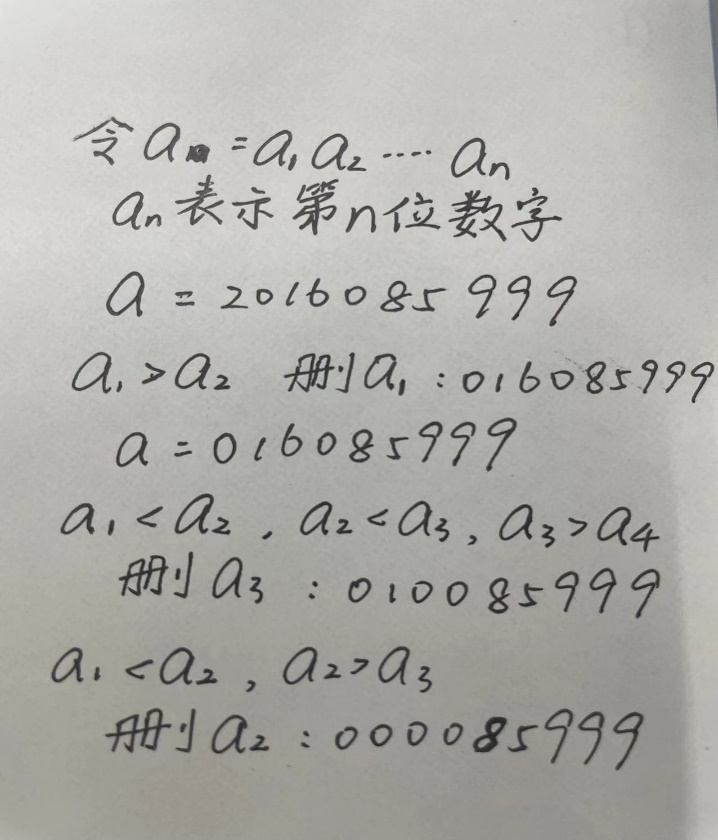 令 a = a₁ a₂ ···· aₙ
aₙ 表示 第n位数字
a = 2016085999
a₁ > a₂ 删 a₁ : 016085999
a = 016085999
a₁ < a₂ , a₂ < a₃ , a₃ > a₄
删 a₃ : 010085999
a₁ < a₂ , a₂ > a₃
删 a₂ : 000085999